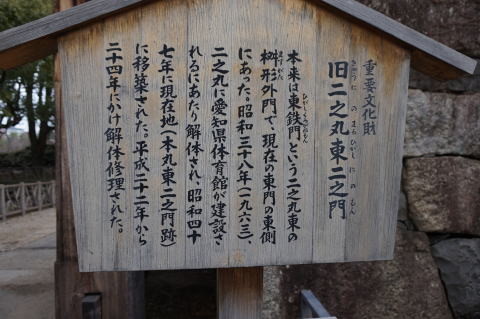 重要文化財
旧二之丸東二之門
きゅうにのまるひがしにのもん
本来は東鉄門という二之丸東の
桝形外門で、現在の東門の東側
にあった。昭和三十八年(一九六三)、
二之丸に愛知県体育館が建設さ
れるにあたり解体され、昭和四十
七年に現在地(本丸東二之門跡)
に移築された。平成二十二年から
二十四年にかけ解体修理された。